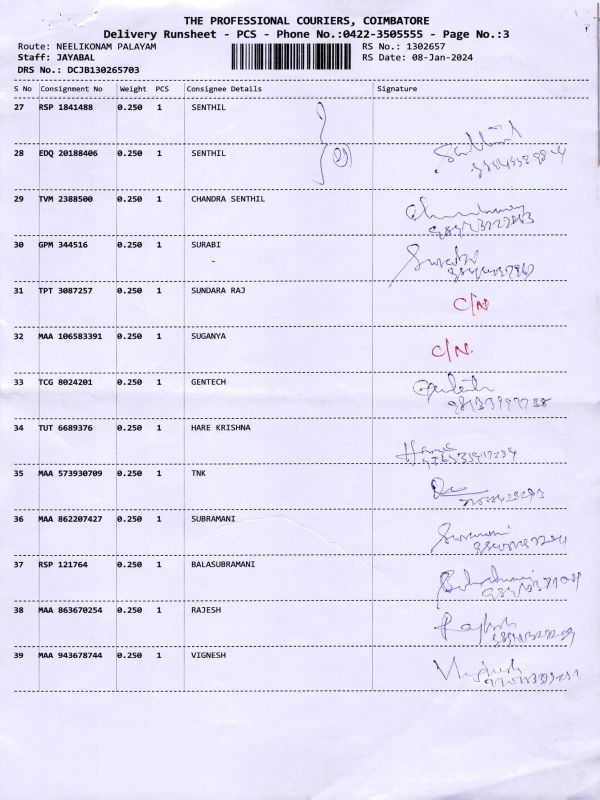 THE PROFESSIONAL COURIERS, COIMBATORE
Delivery Runsheet - PCS - Phone No.:0422-3505555 - Page No.:3
Route: NEELIKONAM PALAYAM RS No.: 1302657
Staff: JAYABAL RS Date: 08-Jan-2024
DRS No.: DCJB130265703
S No Consignment No Weight PCS Consignee Details Signature
27 RSP 1841488 0.250 1 SENTHIL
28 EDQ 20188406 0.250 1 SENTHIL
29 TVM 2388500 0.250 1 CHANDRA SENTHIL
30 GPM 344516 0.250 1 SURABI
-
31 TPT 3087257 0.250 1 SUNDARA RAJ C/N
32 MAA 106583391 0.250 1 SUGANYA C/N.
33 TCG 8024201 0.250 1 GENTECH
34 TUT 6689376 0.250 1 HARE KRISHNA
35 MAA 573930709 0.250 1 TNK
36 MAA 862207427 0.250 1 SUBRAMANI
37 RSP 121764 0.250 1 BALASUBRAMANI
38 MAA 863670254 0.250 1 RAJESH
39 MAA 943678744 0.250 1 VIGNESH